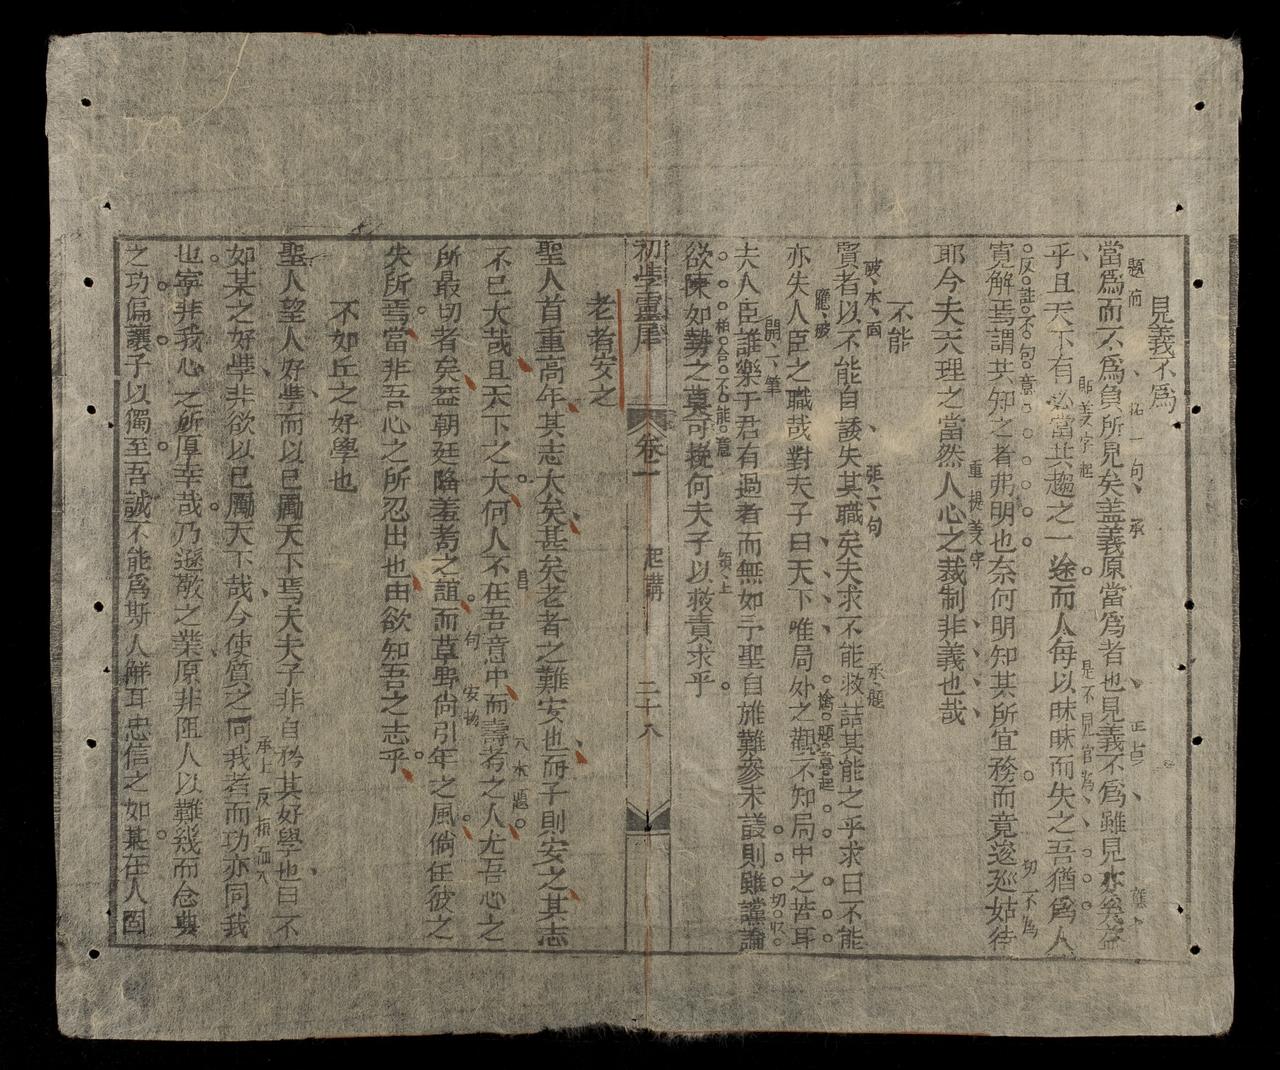 見義不爲
當爲而不爲負所見矣盖義原當爲者也見義不爲雖見亦奚益
乎且天下有必當共趨之一途而人每以昧昧而失之吾猶爲人
寬解焉謂共知之者弗明也奈何明知其所宜務而竟逡廵姑待
耶今夫天理之當然人心之裁制非義也哉
不能
賢者以不能自諉失其職矣夫求不能救詰其能之乎求曰不能
亦失人臣之職哉對夫子曰天下唯局外之觀不知局中之苦耳
夫人臣誰樂于君有過者而無如予聖自雄難參末議則雖讜論
欲陳如勢之莫可挽何夫子以救責求乎
初學靈犀 卷一 起講 二十八
老者安之
聖人首重高年其志大矣甚矣老者之難安也而子則安之其志
不已大哉且天下之大何人不在吾意中而壽耇之人尤吾心之
所最切者矣盖朝廷隆養耇之誼而草野尚引年之風倘任彼之
失所焉當非吾心之所忍出也由欲知吾之志乎
不如丘之好學也
聖人望人好學而以已勵天下焉夫夫子非自矜其好學也曰不
如某之好學非欲以已勵天下哉今使質之同我者而功亦同我
也寧非我心之所厚幸哉乃遜敏之業原非阻人以難幾而念典
之功偏讓予以獨至吾誠不能爲斯人解耳忠信之如某在人固